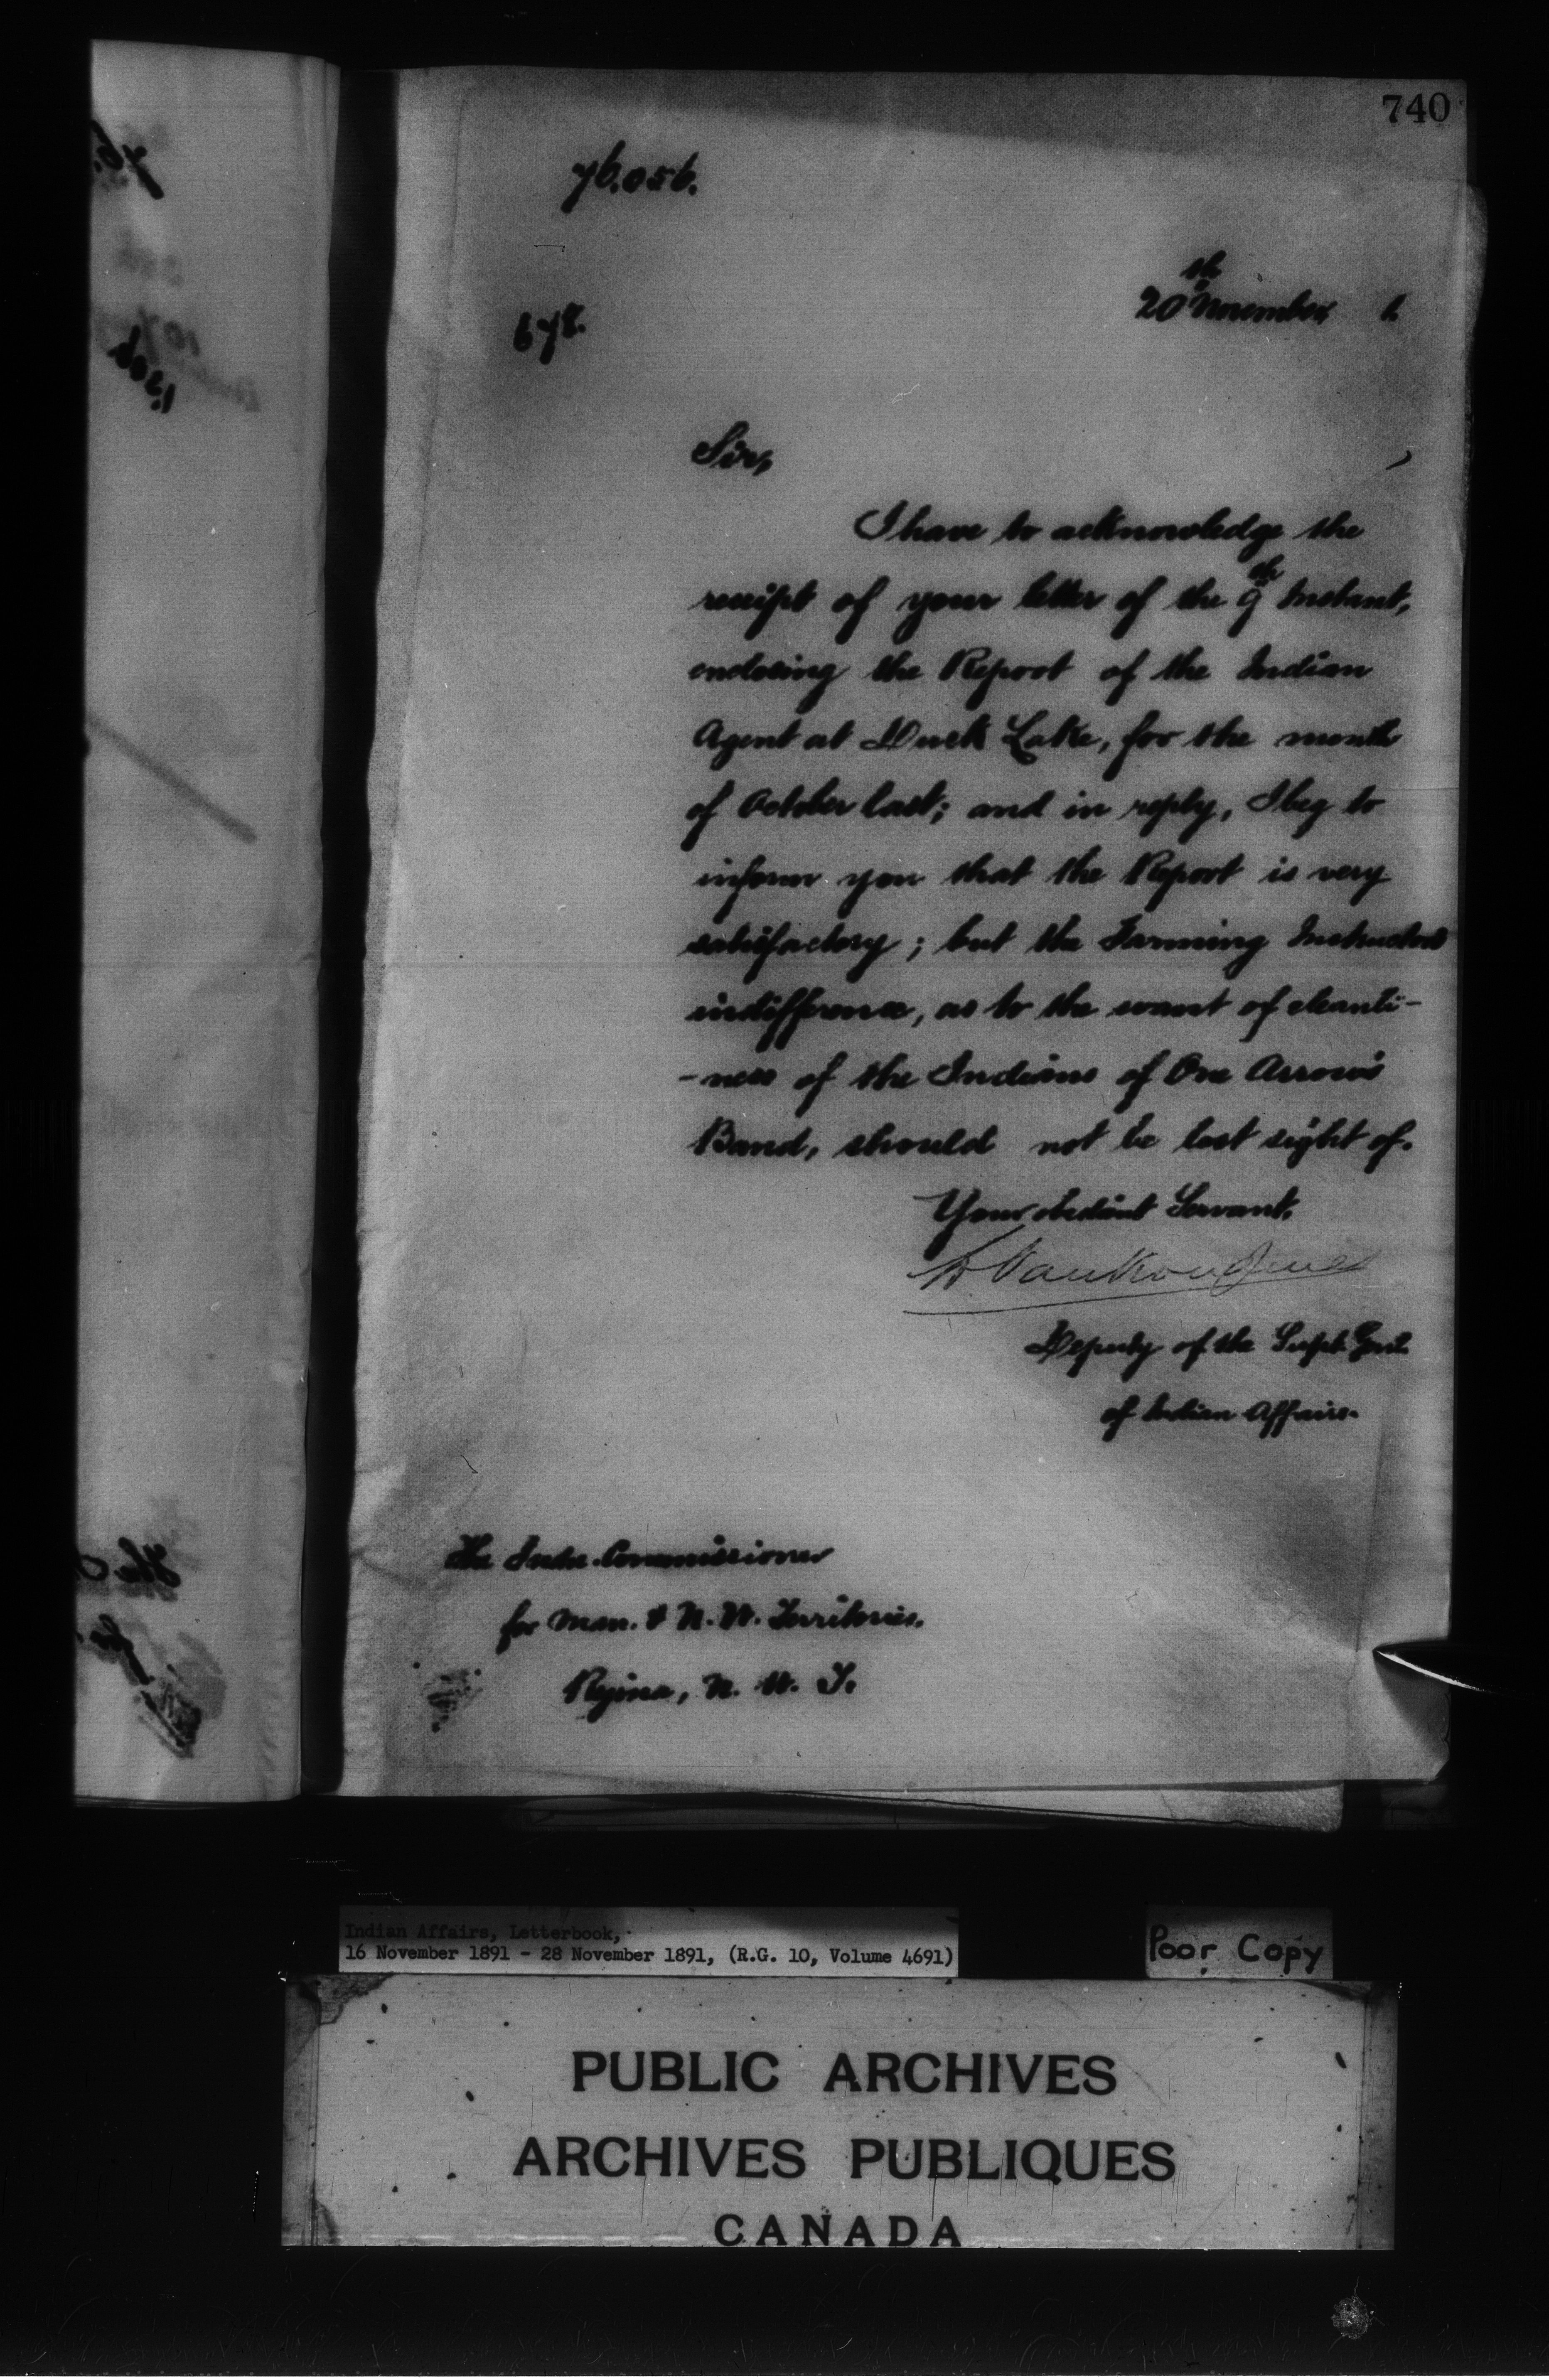 740
76.056.
20th November 1.
678.
Sir,
I have to acknowledge the
receipt of your letter of the 9th Instant,
enclosing the Report of the Indian
Agent at Duck Lake, for the month
of October last; and in reply, I beg to
inform you that the Report is very
satisfactory; but the Farming Instructors
indifference, as to the want of cleanli-
-ness of the Indians of One Arrow's
Band, should not be lost sight of.
Your obedient Servant,
L. Vankoughnet
Deputy of the Supt. Genl.
of Indian Affairs.
The Indn. Commissioner
for Man. & N. W. Territories.
Regina, N. W. T.
Indian Affairs, Letterbook,
16 November 1891 - 28 November 1891, (R.G. 10, Volume 4691)
Poor Copy
PUBLIC ARCHIVES
ARCHIVES PUBLIQUES
CANADA